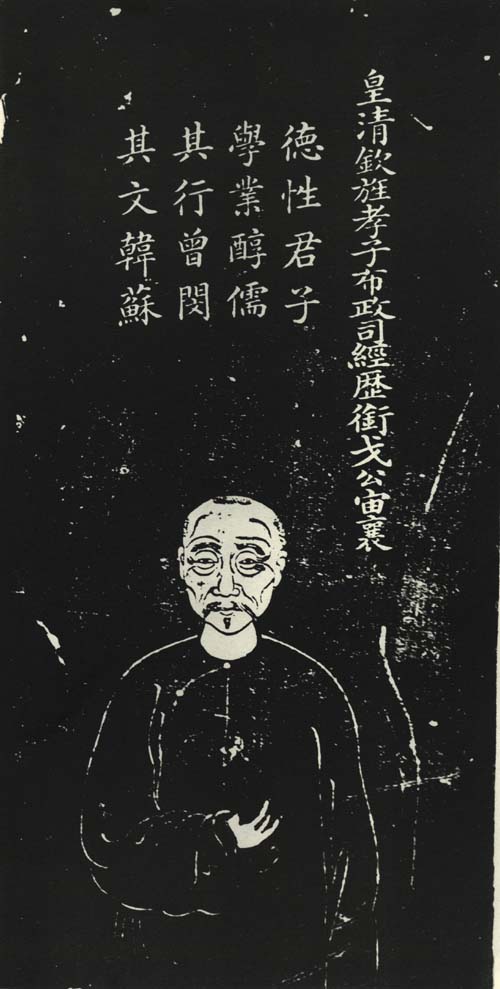 皇清欽旌孝子布政司經歷銜戈公宙襄
德性君子
學業醇儒
其行曾閔
其文韓蘇